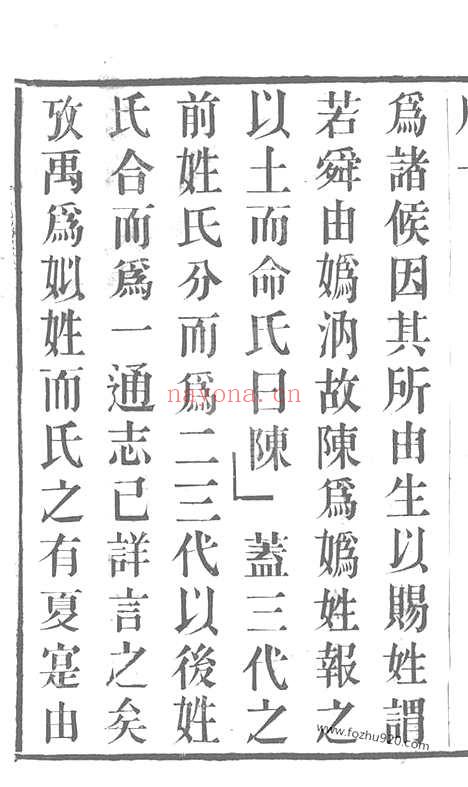 爲諸候因其所由生以賜姓謂
若舜由嬀汭故陳爲嬀姓報之
以土而命氏曰陳」蓋三代之
前姓氏分而爲二三代以後姓
氏合而爲一通志已詳言之矣
攷禹爲姒姓而氏之有夏寔由
nayona.cn
www.fozhu920.com